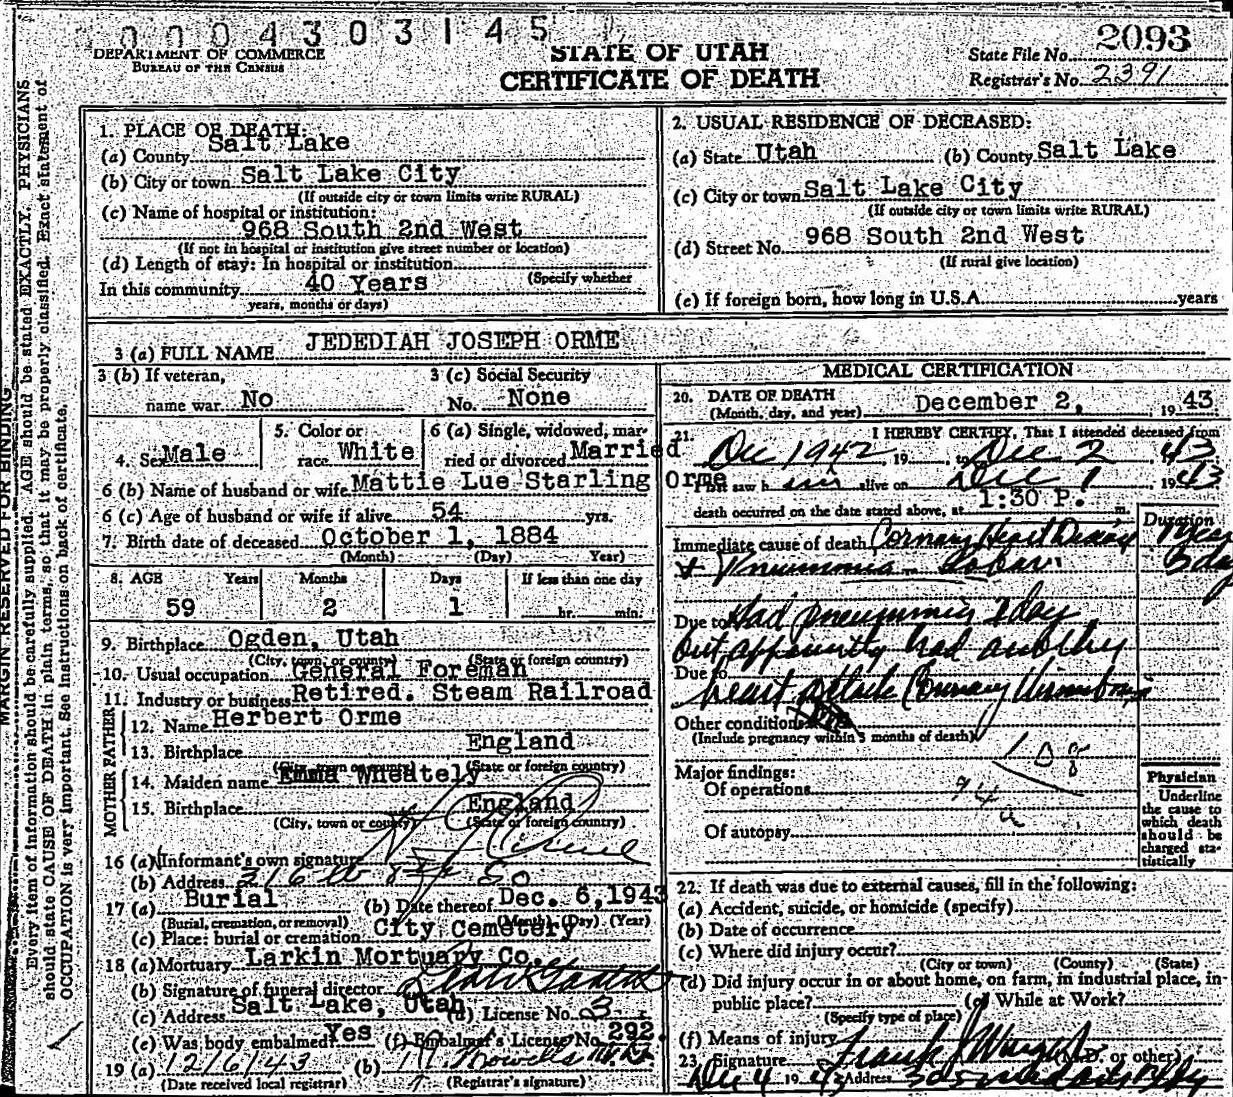 0004303145
DEPARTMENT OF COMMERCE
BUREAU OF THE CENSUS
STATE OF UTAH
CERTIFICATE OF DEATH
State File No. 2093
Registrar's No. 2391
MARGIN RESERVED FOR BINDING
Every item of information should be carefully supplied. AGE should be stated EXACTLY. PHYSICIANS
should state CAUSE OF DEATH in plain terms, so that it may be properly classified. Exact statement of
OCCUPATION is very important. See instructions on back of certificate.
1. PLACE OF DEATH:
(a) County Salt Lake
(b) City or town Salt Lake City
(If outside city or town limits write RURAL)
(c) Name of hospital or institution:
968 South 2nd West
(If not in hospital or institution give street number or location)
(d) Length of stay: In hospital or institution
(Specify whether
In this community 40 Years
years, months or days)
2. USUAL RESIDENCE OF DECEASED:
(a) State Utah (b) County Salt Lake
(c) City or town Salt Lake City
(If outside city or town limits write RURAL)
(d) Street No. 968 South 2nd West
(If rural give location)
(e) If foreign born, how long in U.S.A. years
3 (a) FULL NAME JEDEDIAH JOSEPH ORME
3 (b) If veteran, name war No
3 (c) Social Security No. None
4. Sex Male
5. Color or race White
6 (a) Single, widowed, married or divorced Married
6 (b) Name of husband or wife Mattie Lue Starling Orme
6 (c) Age of husband or wife if alive 54 yrs.
7. Birth date of deceased October 1, 1884
(Month) (Day) Year)
8. AGE Years Months Days If less than one day
59 2 1 hr. min.
9. Birthplace Ogden, Utah
(City, town or county) (State or foreign country)
10. Usual occupation General Foreman
11. Industry or business Retired. Steam Railroad
FATHER
12. Name Herbert Orme
13. Birthplace England
(City, town or county) (State or foreign country)
MOTHER
14. Maiden name Emma Wheately
15. Birthplace England
(City, town or county) (State or foreign country)
16 (a) Informant's own signature
(b) Address 316
17 (a) Burial (b) Date thereof Dec. 6, 1943
(Burial, cremation, or removal) (Month) (Day) (Year)
(c) Place: burial or cremation City Cemetery
18 (a) Mortuary Larkin Mortuary Co.
(b) Signature of funeral director
(c) Address Salt Lake, Utah (d) License No. 3
(e) Was body embalmed? Yes (f) Embalmer's License No. 292
19 (a) 12/6/43 (b)
(Date received local registrar) (Registrar's signature)
MEDICAL CERTIFICATION
20. DATE OF DEATH
(Month, day, and year) December 2, 19 43
21. I HEREBY CERTIFY, That I attended deceased from
Dec 1942, 19 to Dec 2 43
I last saw him alive on Dec 1 1943
death occurred on the date stated above, at 1:30 P. m.
Duration
Immediate cause of death Cornary Heart Disease 1 year
+ Pneumonia Lobar 3 day
Due to Had pneumonia 2 day
but apparently had another
Due to heart attack Cornary
Other conditions
(Include pregnancy within 3 months of death)
108
Major findings:
Of operations
94a
Of autopsy
Physician
Underline
the cause to
which death
should be
charged sta-
tistically
22. If death was due to external causes, fill in the following:
(a) Accident, suicide, or homicide (specify)
(b) Date of occurrence
(c) Where did injury occur?
(City or town) (County) (State)
(d) Did injury occur in or about home, on farm, in industrial place, in
public place? (e) While at Work?
(Specify type of place)
(f) Means of injury
23. Signature Frank J (M.D. or other)
Dec 4 19 43 Address 305 Bldg